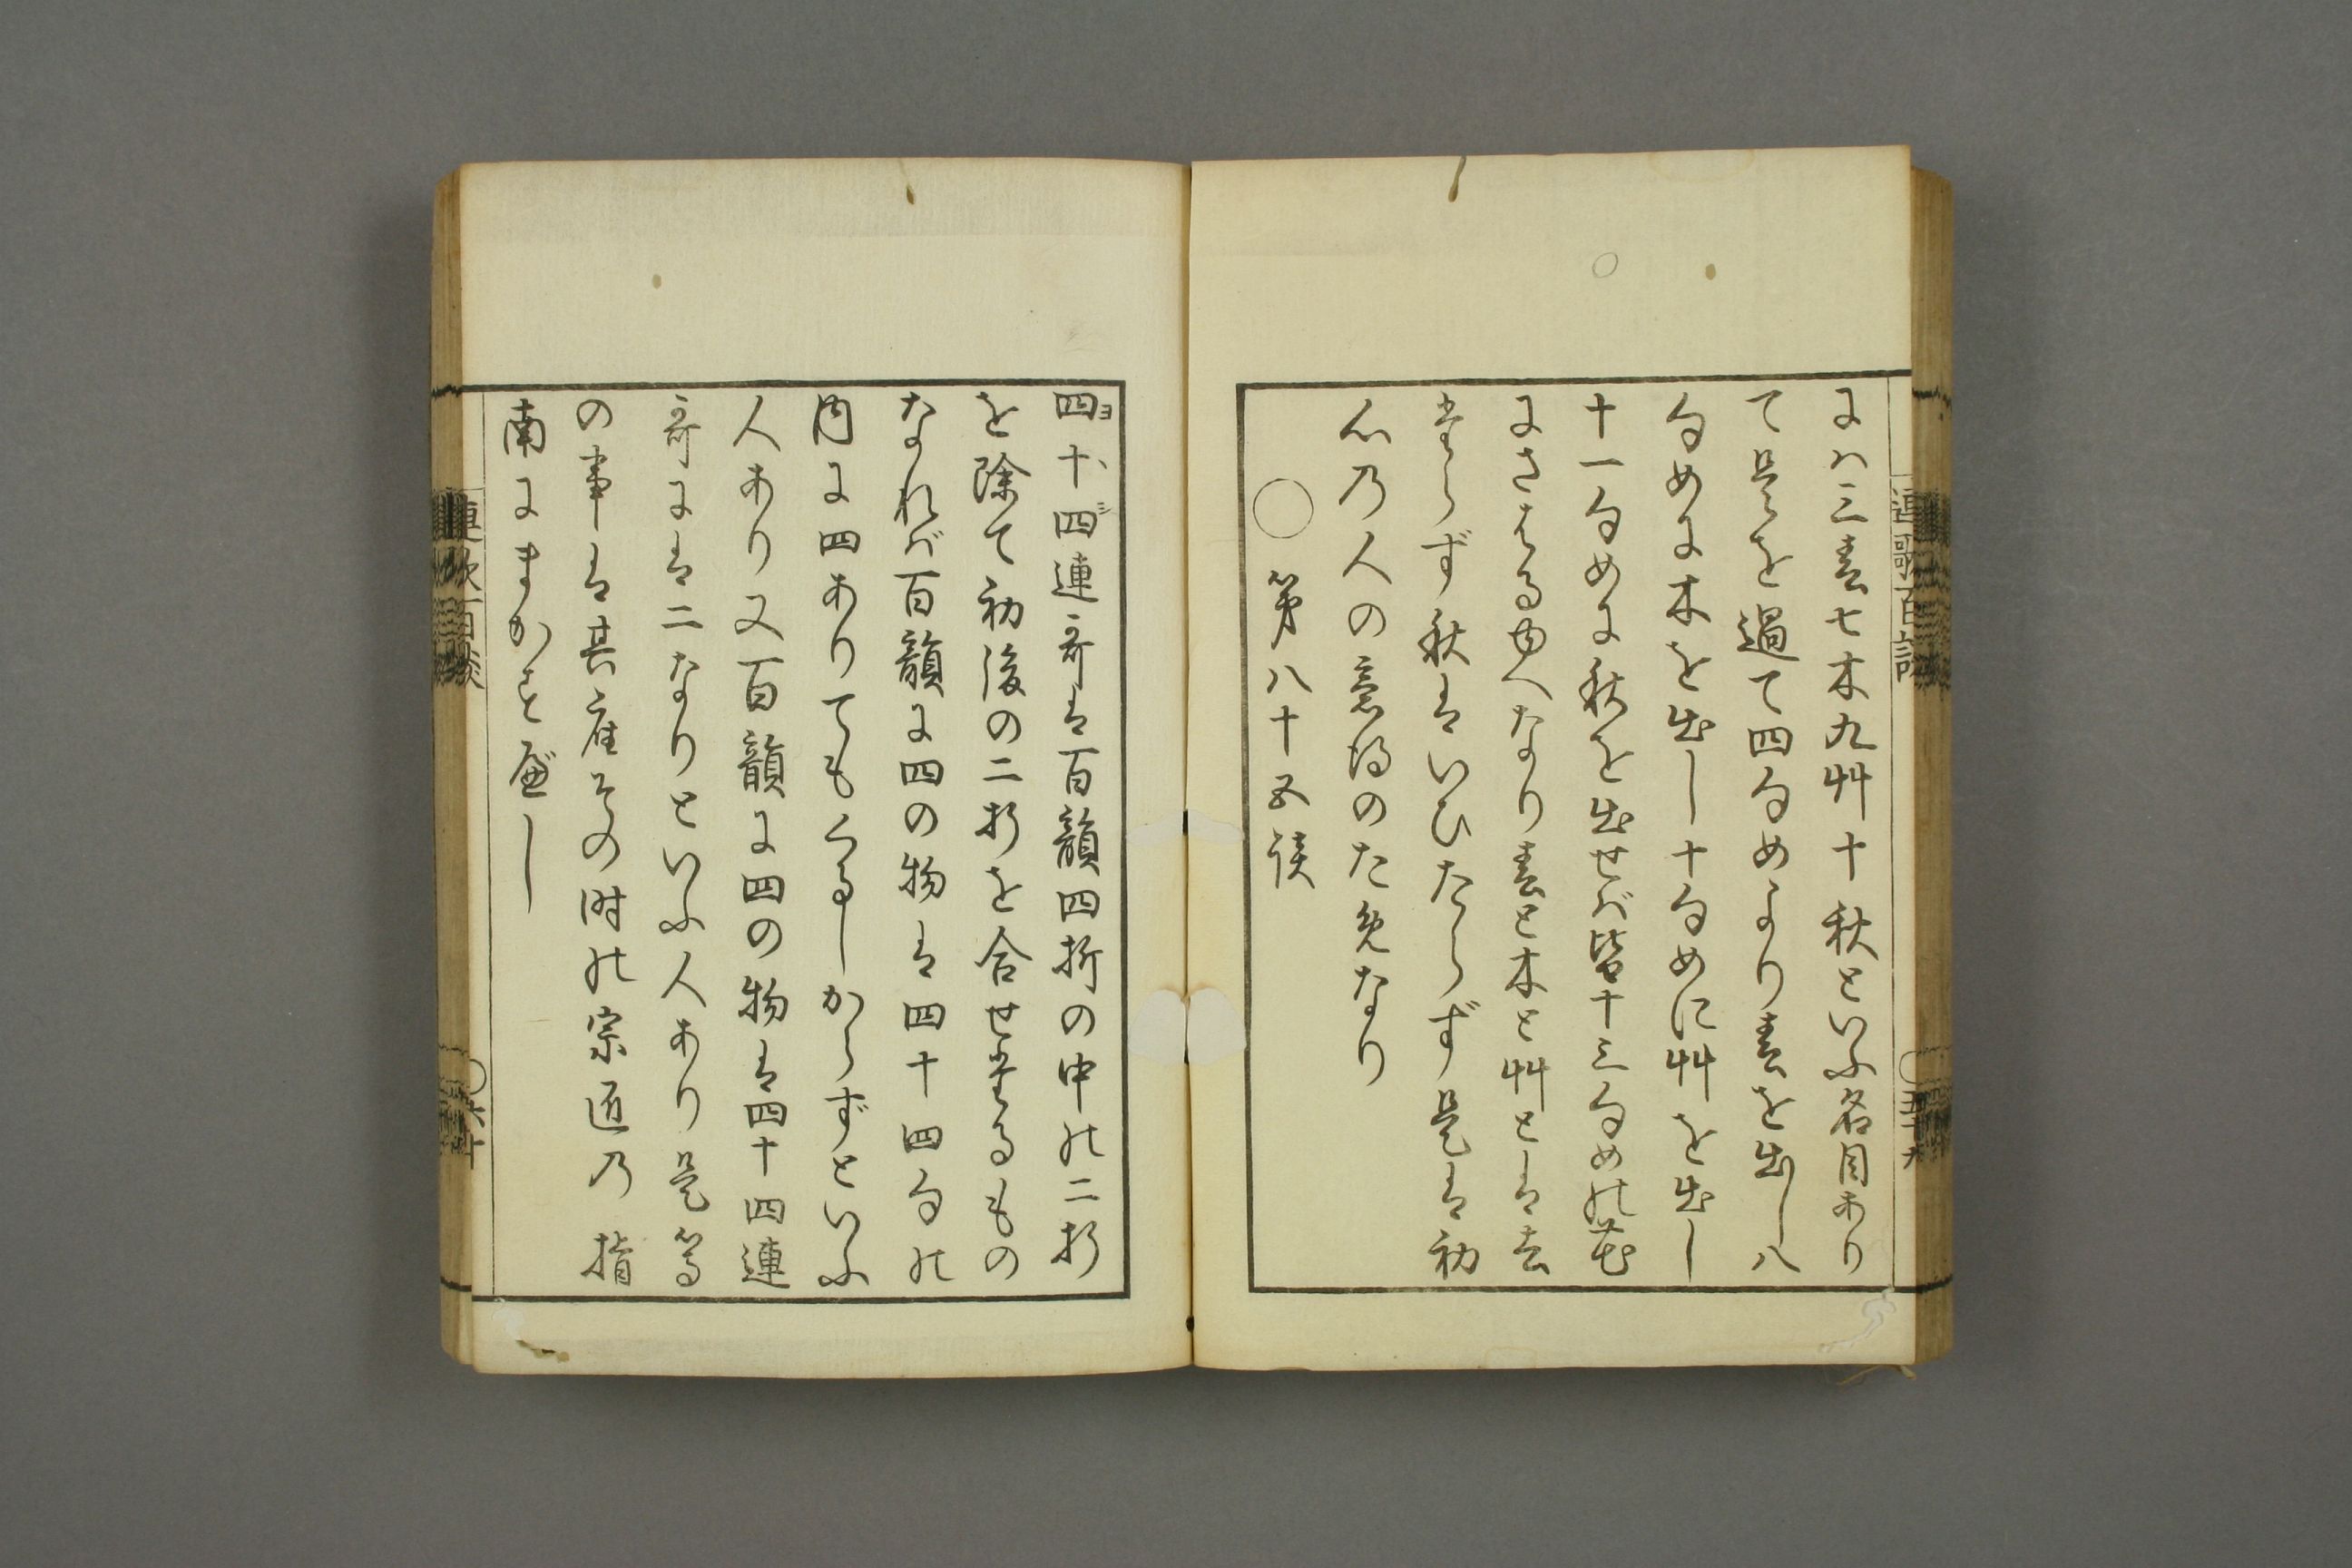 にハ三春七木九艸十秋といふ名目あり
て是を過て四句めより春を出し八
句めに木を出し十句めに艸を出し
十一句めに秋を出せば皆十三句めの花
にさはるゆへなり春と木と艸とは去
きらず秋はいひたらず是は初
心乃人の意得のため なり
○第八十五談
四十四連哥は百韻四折の中の二折
を除て初後の二折を合せたるもの
なれば百韻に四の物は四十四句の
内に四ありてもくるしからずといふ
人あり又百韻に四の物は四十四連
哥には二なりといふ人あり是等
の事は其座その時の宗匠乃指
南にまかすべし
連歌百談
六十
連歌百談
五十九